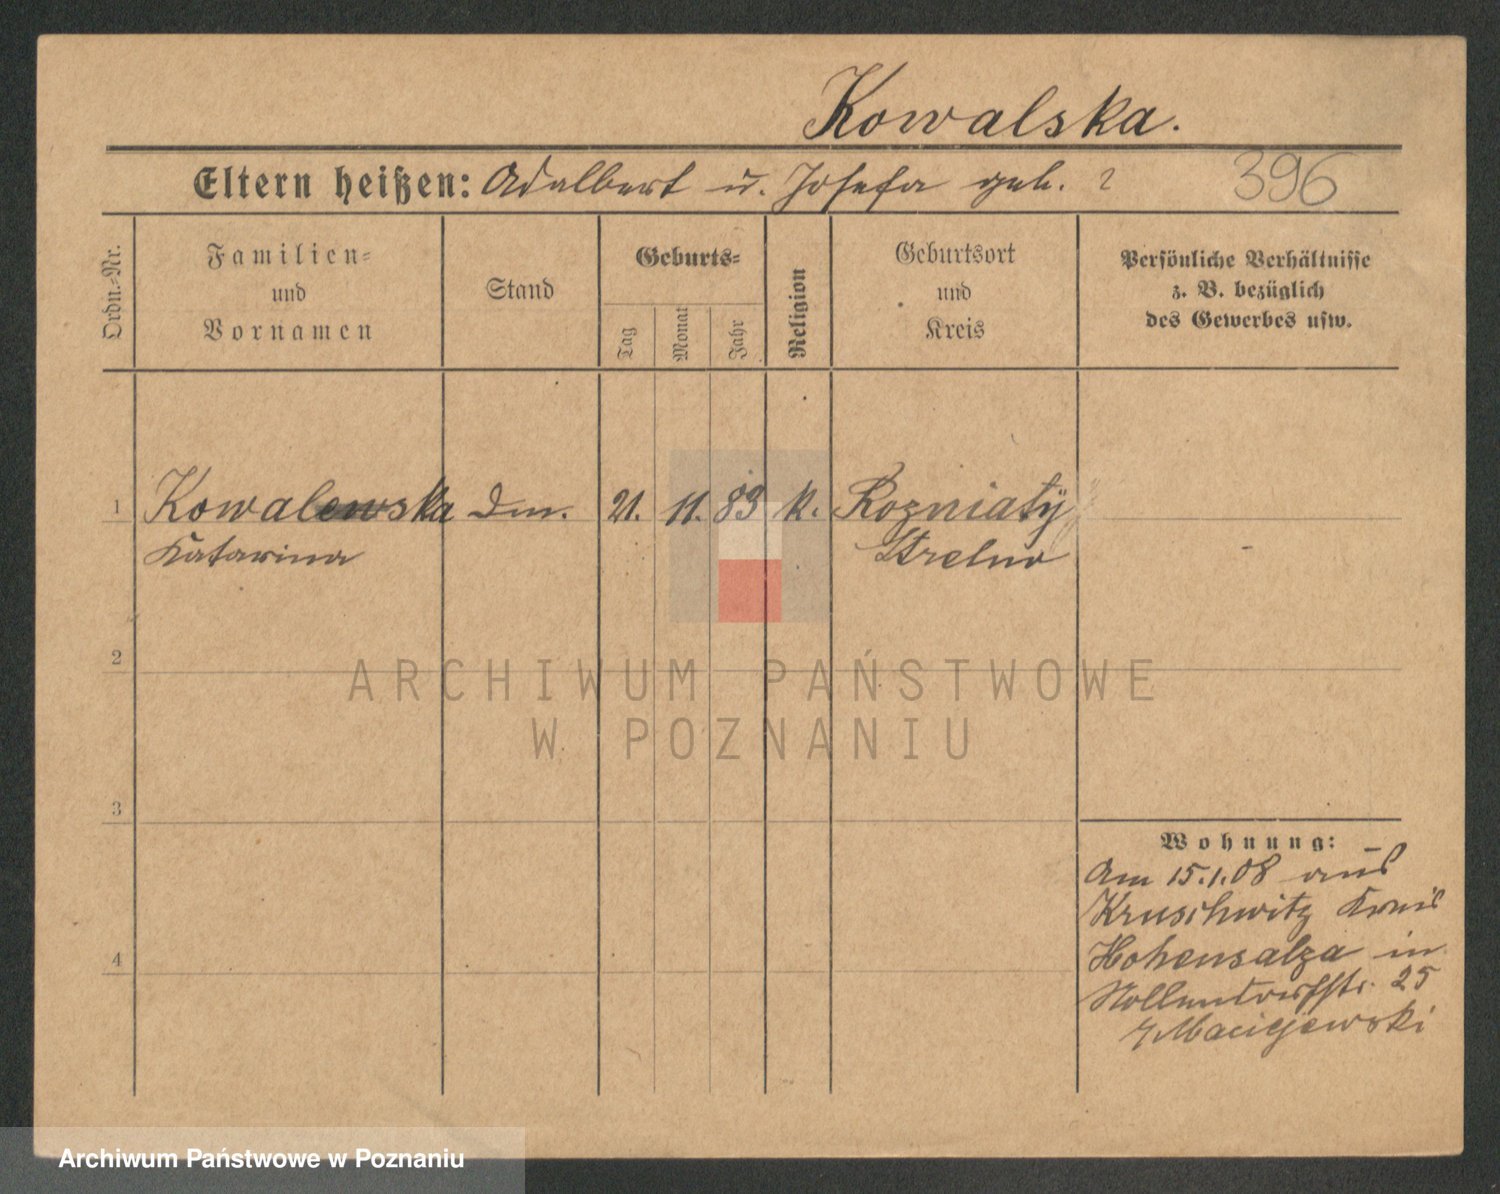 Kowalska.
Eltern heißen: Adalbert u. Josefa geb. ?
396
Ordn.-Nr.
Familien-
und
Vornamen
Stand
Geburts-
Tag
Monat
Jahr
Religion
Geburtsort
und
Kreis
Persönliche Verhältnisse
z. B. bezüglich
des Gewerbes usw.
1 Kowalewska 21. 11. 83 k. Rozniaty
Katarina Strelno
2
3
4
Wohnung:
Am 15.1.08 aus
Kruschwitz Kreis
Hohensalza in
Nollendorfstr. 25
Maciejewski
ARCHIWUM PAŃSTWOWE
W POZNANIU
Archiwum Państwowe w Poznaniu